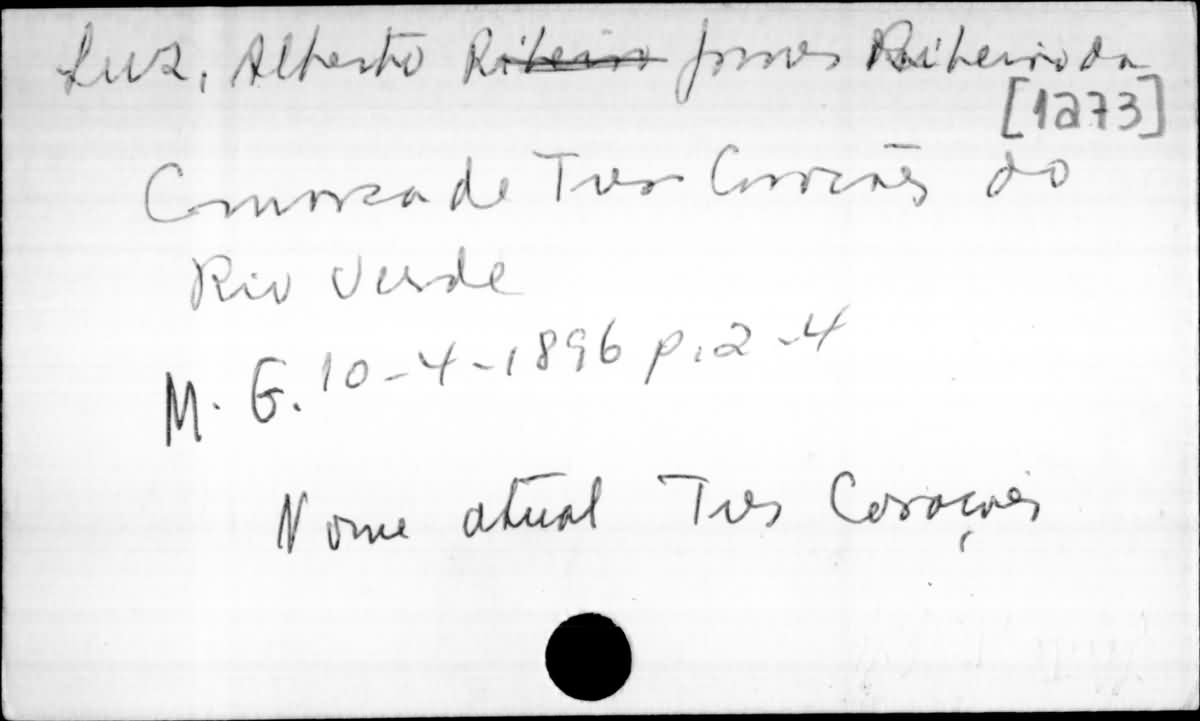 Luz, Alberto Ribeiro Gomes Ribeiro da
[1273]
Comarca de Tres Corações do
Rio Verde
M. G. 10-4-1896 p. 2-4
Nome atual Tres Corações